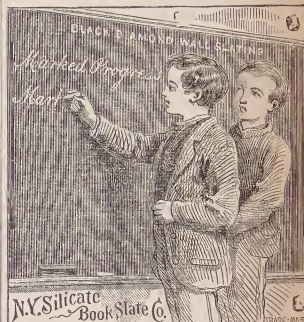 BLACK DIAMOND WALL SLATING
Marked Progress
Mark
N.Y. Silicate
Book Slate Co.
TRADE-MAR